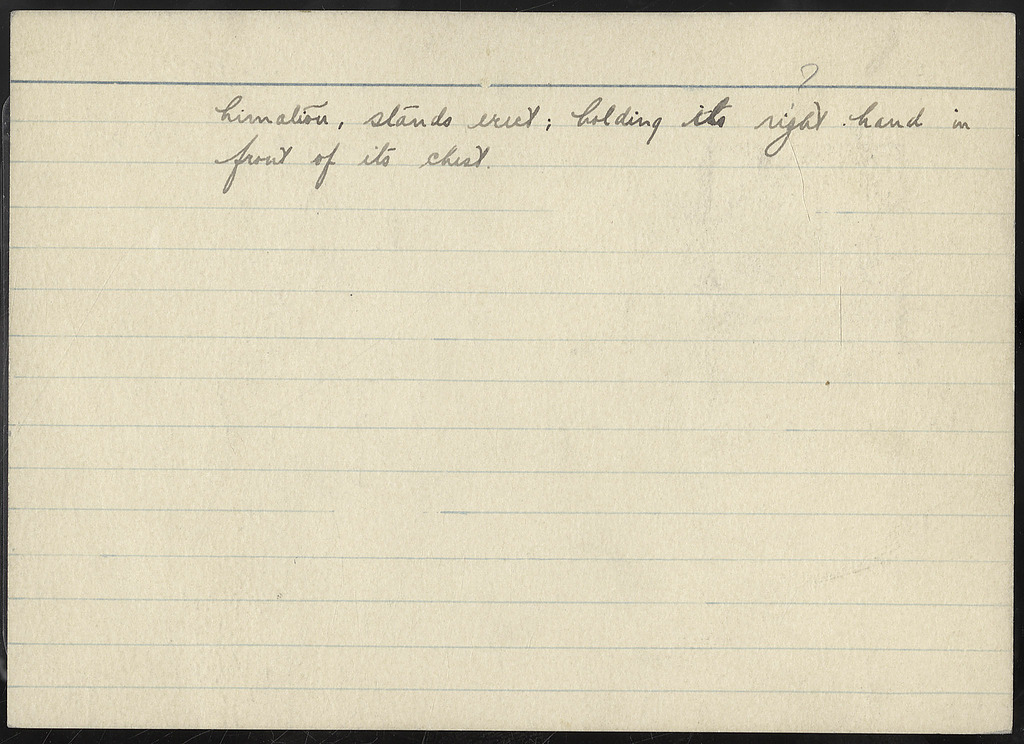 ?
himation, stands erect; holding its right hand in
front of its chest.